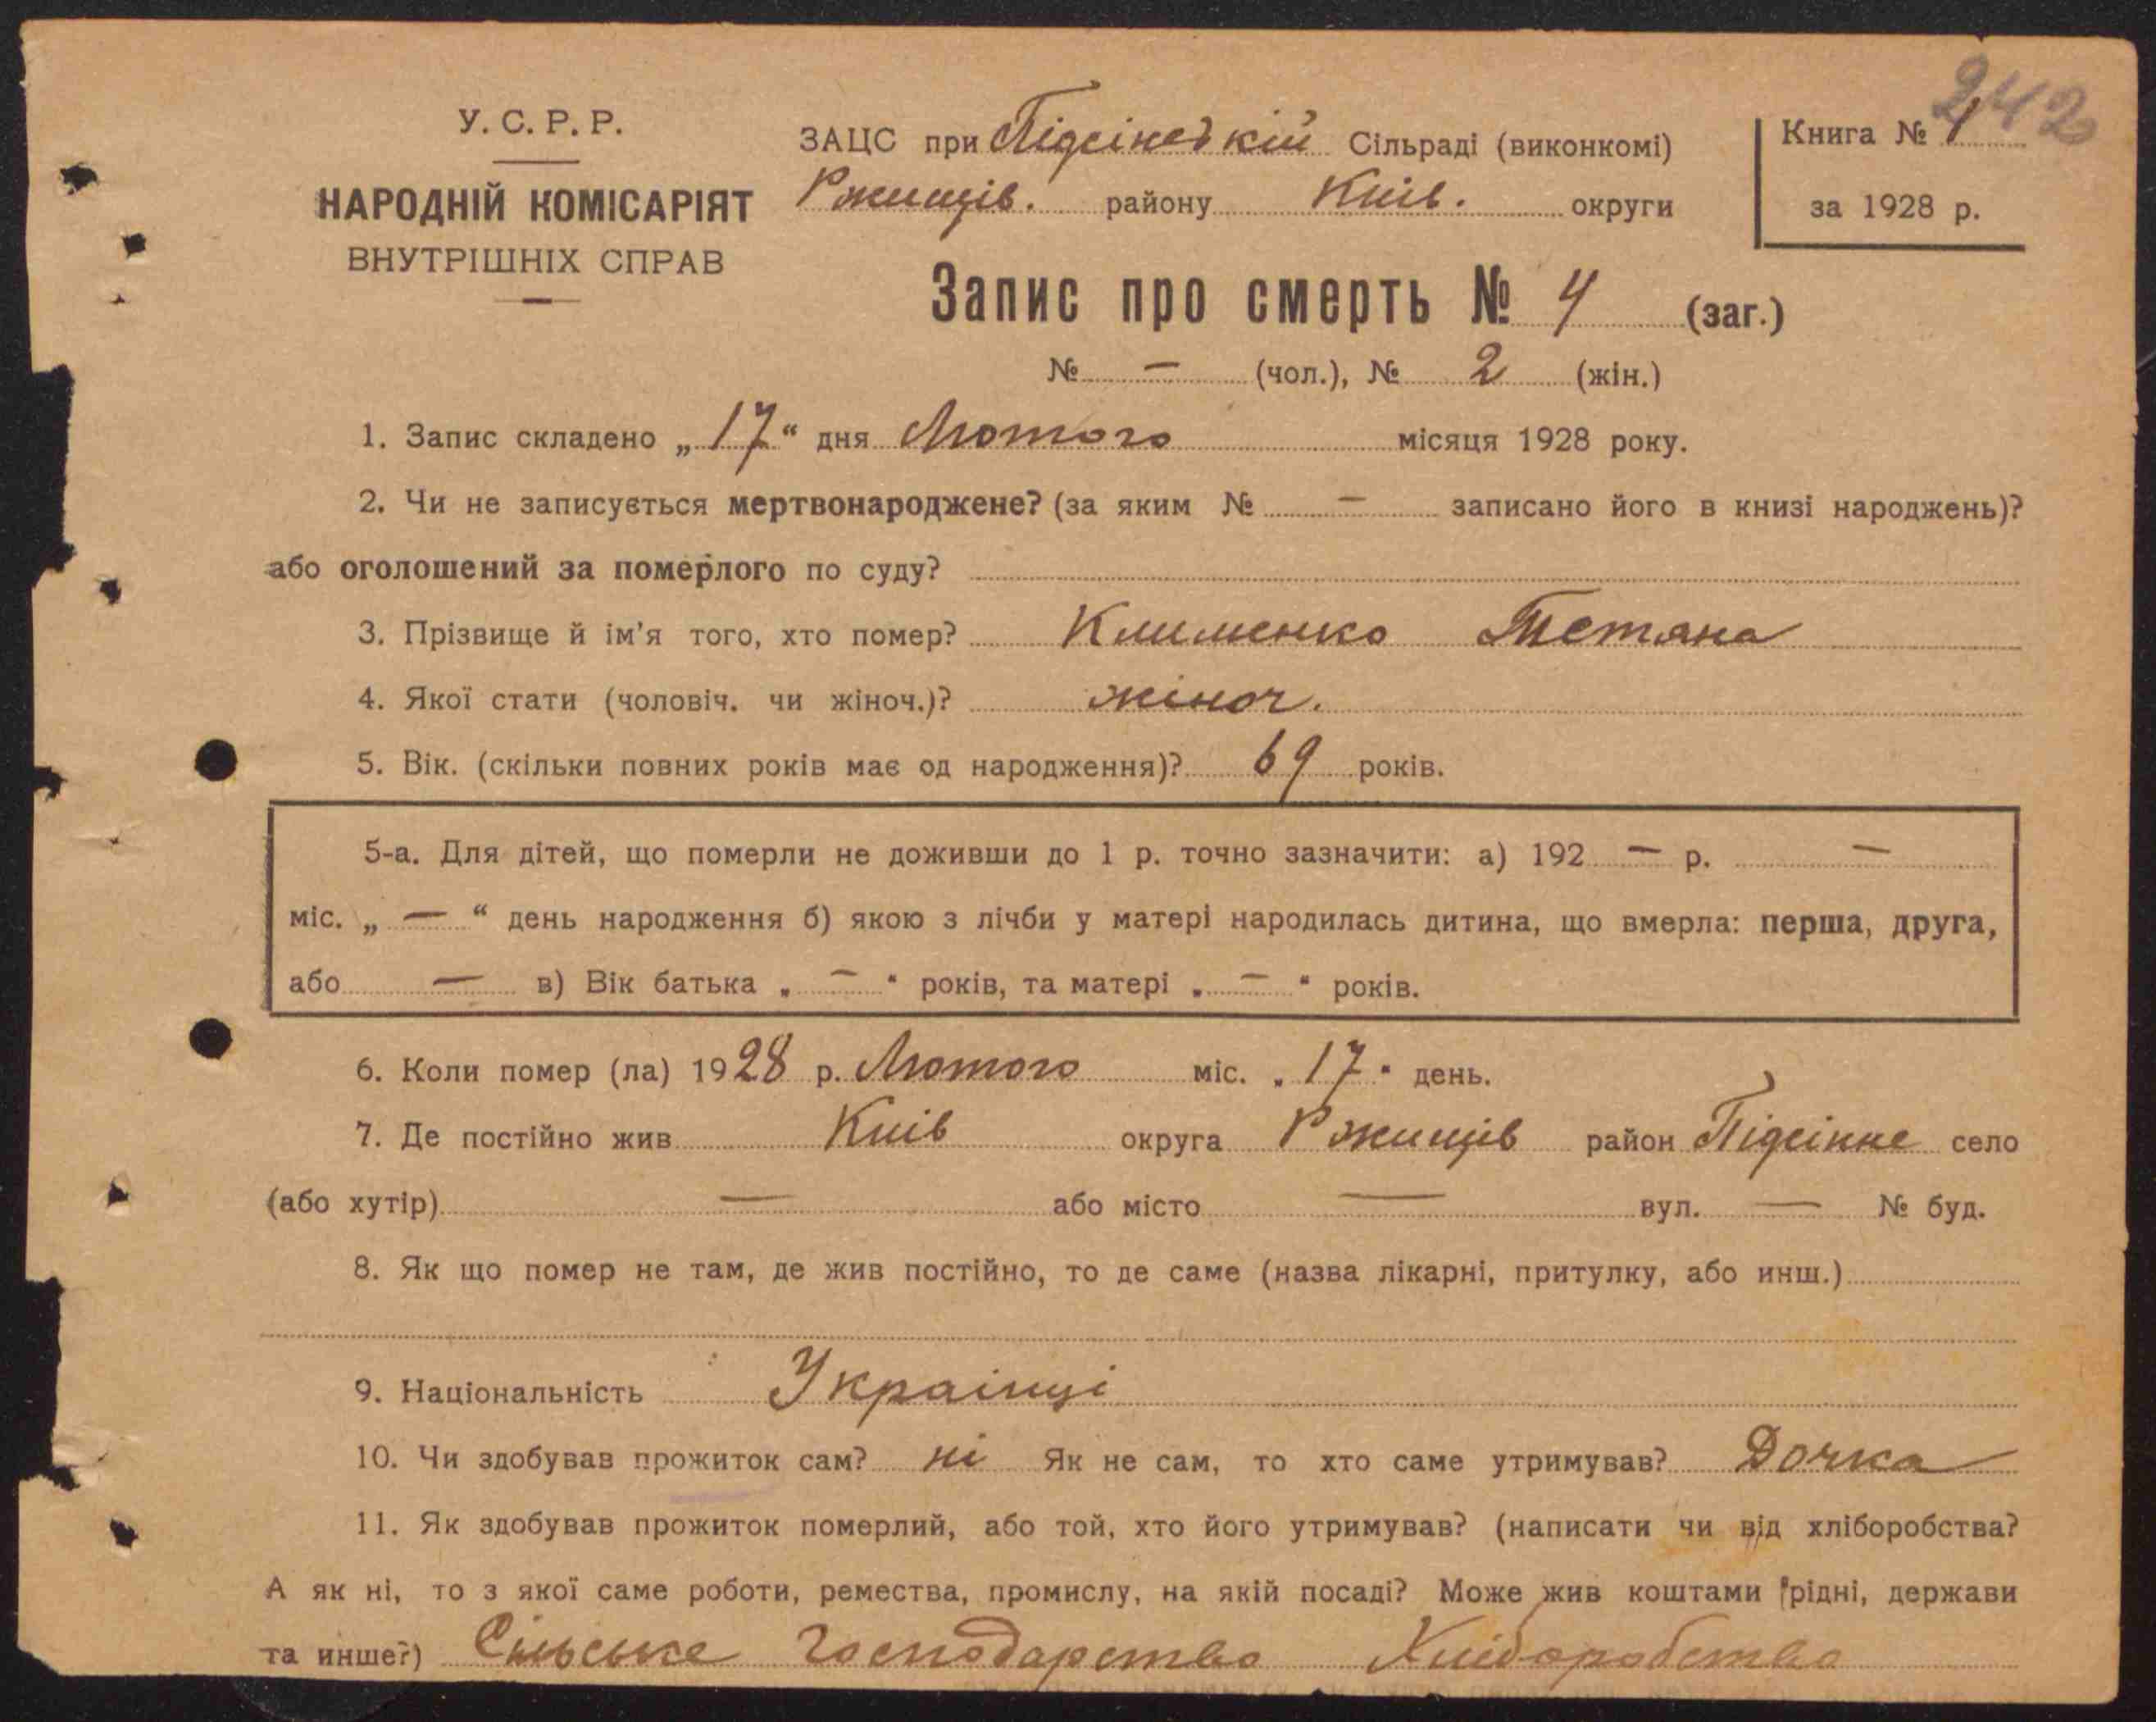 242
У. С. Р. Р.
НАРОДНІЙ КОМІСАРІЯТ
ВНУТРІШНІХ СПРАВ
ЗАЦС при Підсінській Сільраді (виконкомі)
Ржищів. району Київ. округи
Книга № 1
за 1928 р.
Запис про смерть № 4 (заг.)
№ — (чол.), № 2 (жін.)
1. Запис складено „17“ дня Лютого місяця 1928 року.
2. Чи не записується мертвонароджене? (за яким № — записано його в книзі народжень)?
або оголошений за померлого по суду?
3. Прізвище й ім'я того, хто помер? Клименко Тетяна
4. Якої стати (чоловіч. чи жіноч.)? жіноч.
5. Вік. (скільки повних років має од народження)? 69 років.
5-а. Для дітей, що померли не доживши до 1 р. точно зазначити: а) 192 — р. —
міс. „ — “ день народження б) якою з лічби у матері народилась дитина, що вмерла: перша, друга,
або — в) Вік батька „ — “ років, та матері „ — “ років.
6. Коли помер (ла) 1928 р. Лютого міс. „17“ день.
7. Де постійно жив Київ округа Ржищів район Підсінне село
(або хутір) — або місто — вул. — № буд.
8. Як що помер не там, де жив постійно, то де саме (назва лікарні, притулку, або инш.)
9. Національність Украінці
10. Чи здобував прожиток сам? ні Як не сам, то хто саме утримував? Дочка
11. Як здобував прожиток померлий, або той, хто його утримував? (написати чи від хліборобства?
А як ні, то з якої саме роботи, ремества, промислу, на якій посаді? Може жив коштами рідні, держави
та инше?) Сільське господарство Хліборобство